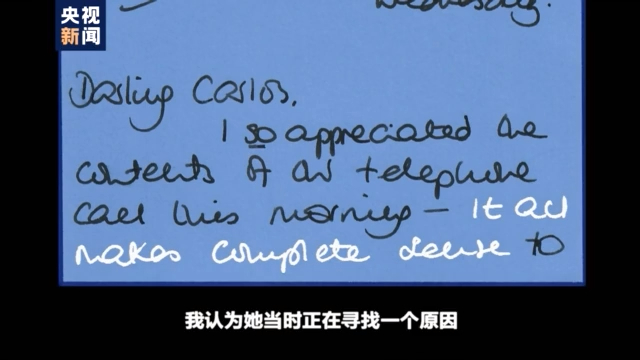 央视
新闻
Wednesday.
Darling Carlos,
I so appreciated the
contents of our telephone
call this morning – it all
makes complete sense to
我认为她当时正在寻找一个原因